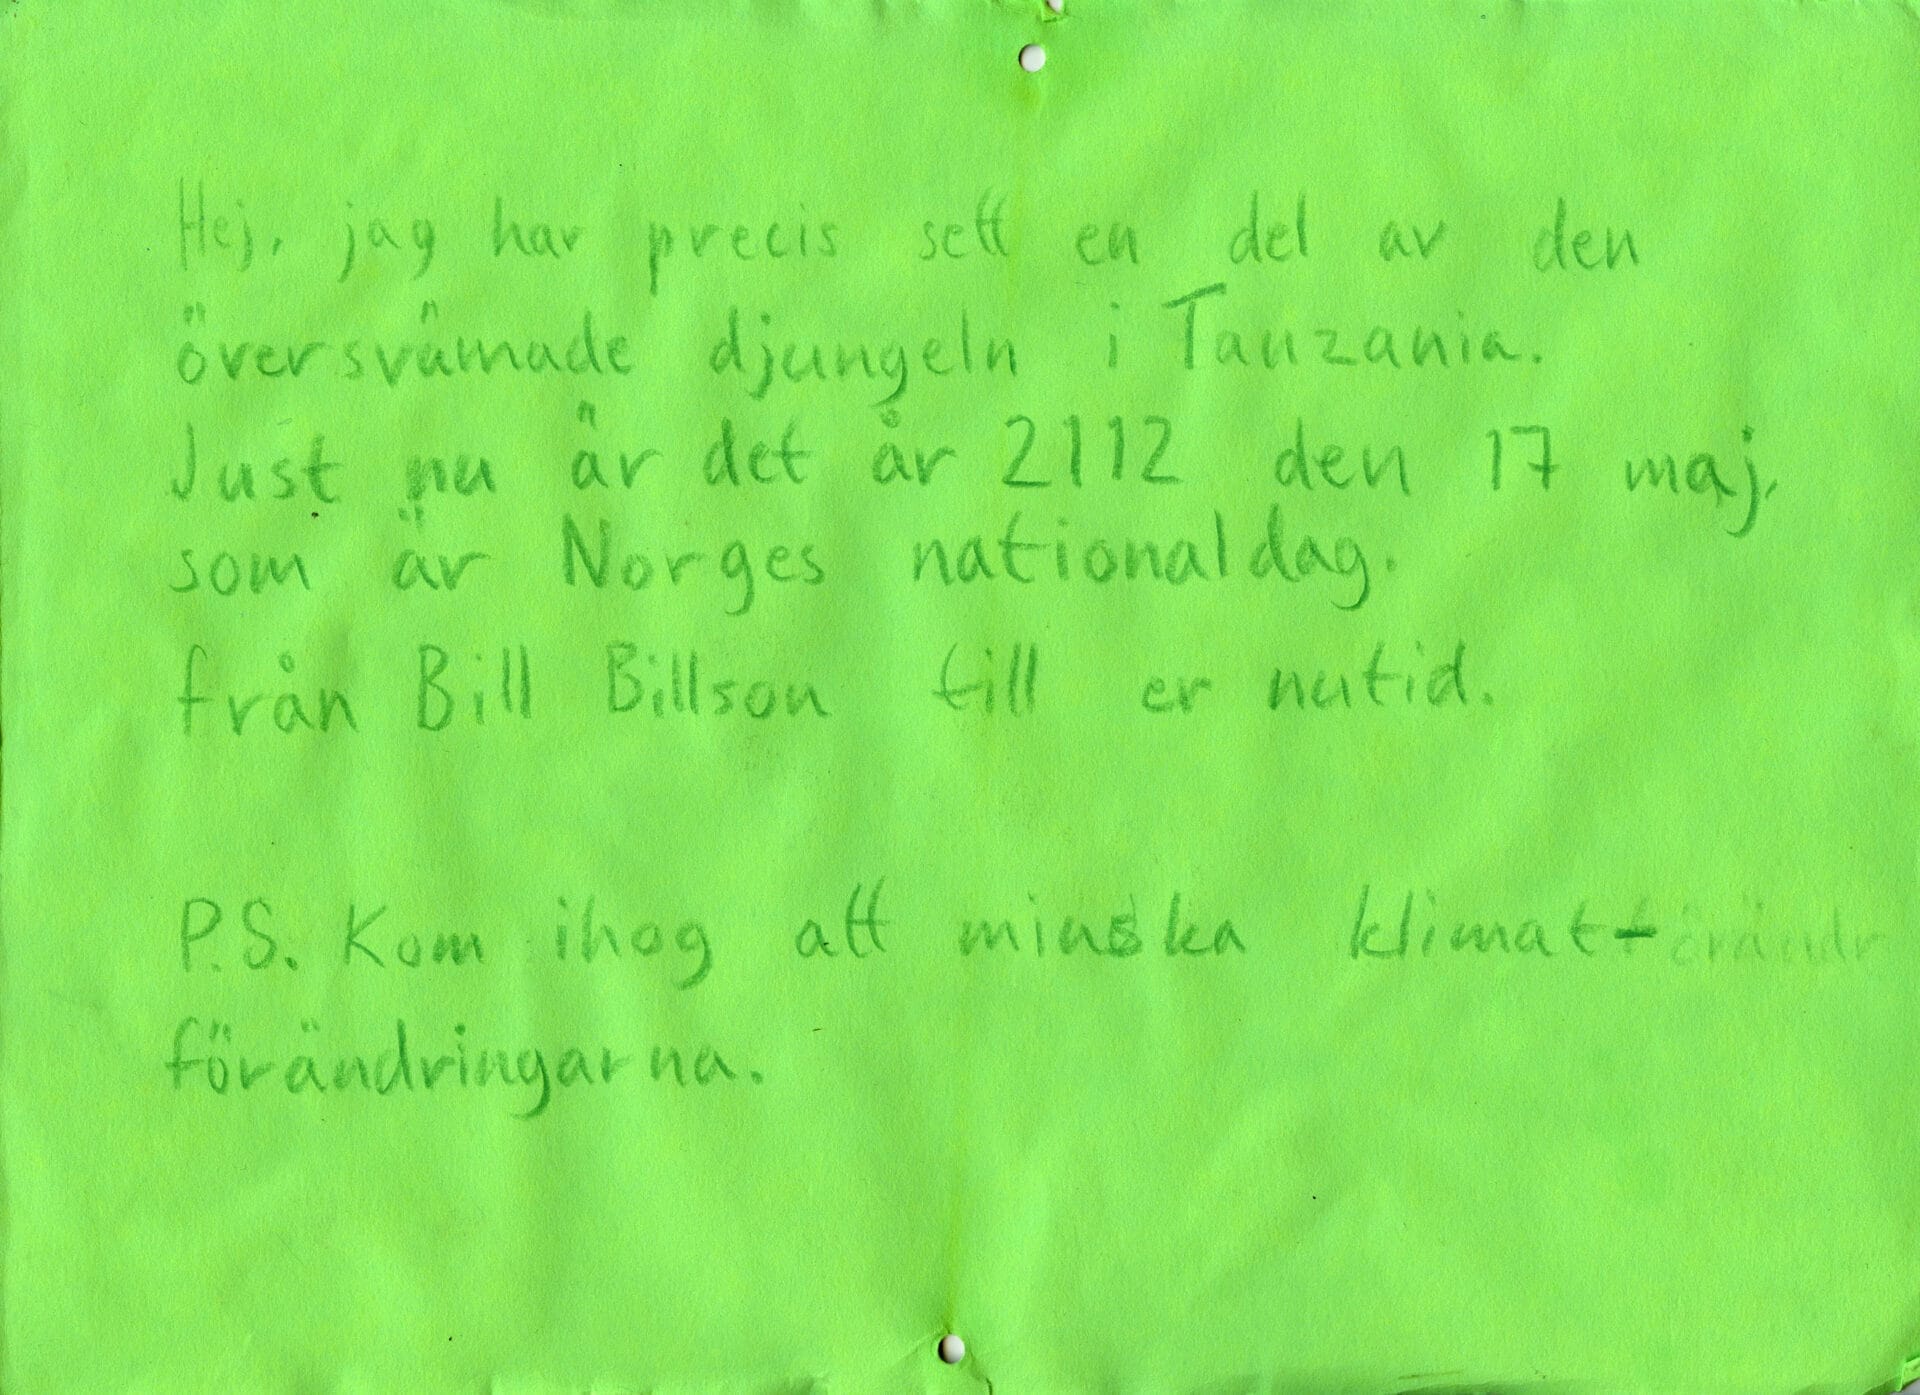 Hej, jag har precis sett en del av den
översvämade djungeln i Tanzania.
Just nu är det år 2112 den 17 maj,
som är Norges nationaldag.
från Bill Billson till er nutid.
P.S. Kom ihog att minska klimat-
förändringarna.